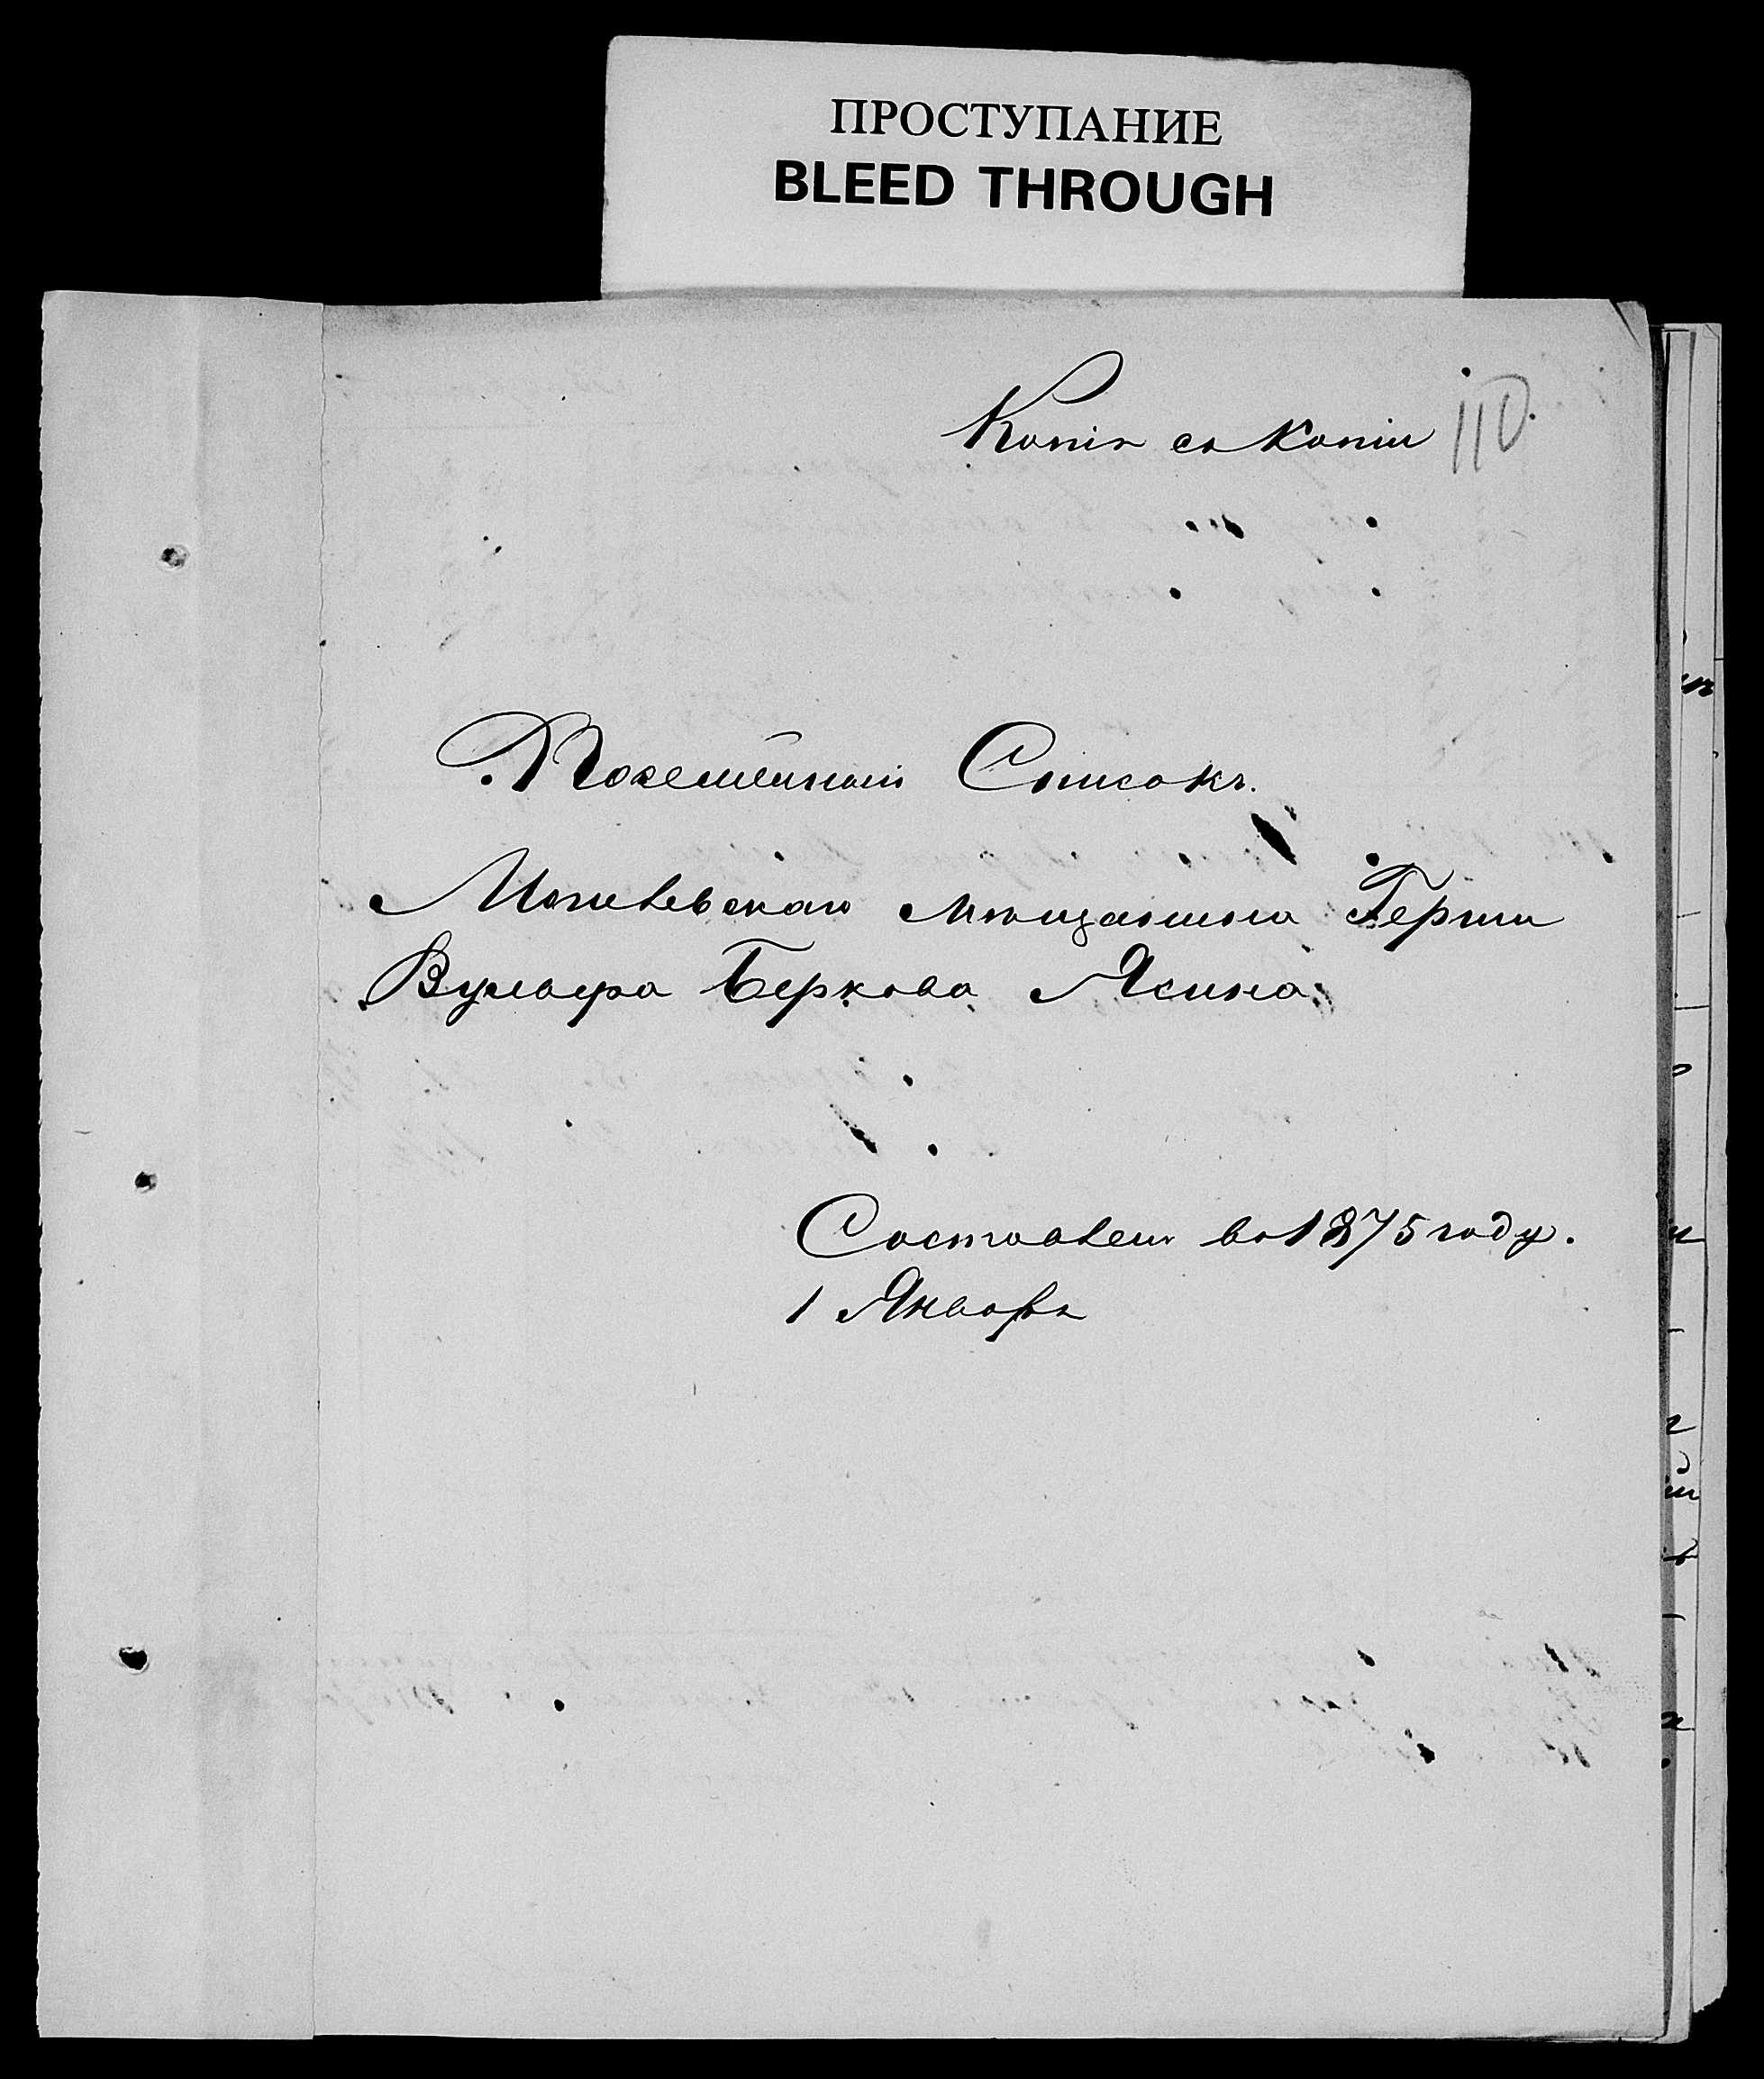 ПРОСТУПАНИЕ
BLEED THROUGH
Копія съ Копіи
110.
Посемейный Списокъ.
Могилевскаго мѣщанина Герши
Вульфа Беркова Ясина
Составленъ въ 1875 году.
1 Январь